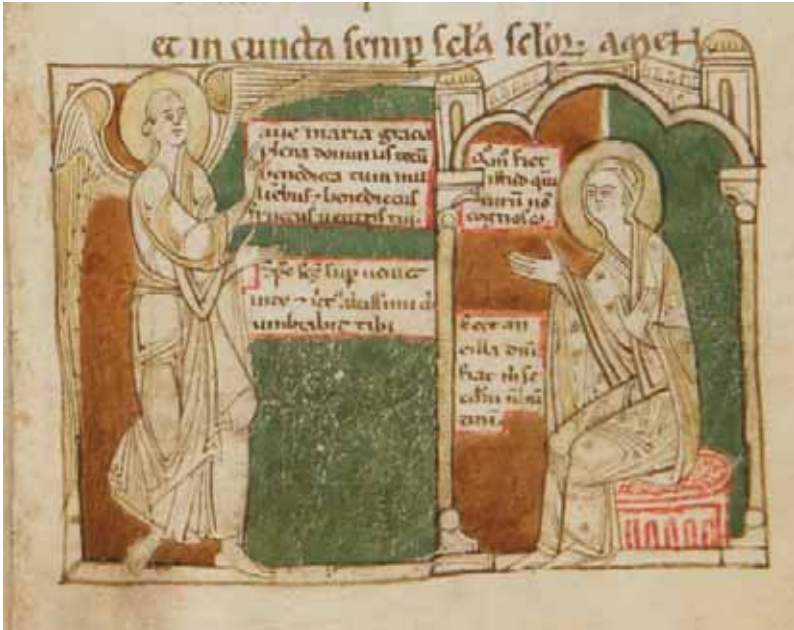 et in cuncta semp̲ scl̃a scl̃oꝝ. amen
aue maria gracia
plena dominus tecũ
benedicta tu in mu
lieribus ⁊ benedictus
fructus uentris tui.
sp̃c sc̃s sup ueniet
in te ⁊ uirt᷒ altissimi ob
umbrabit tibi
Qm̃ fiet
istud qm̃
uirũ nõ
cognosco.
Ecce an
cilla dñi
fiat m̃ se
cdm̃ uerbũ
tuũ.